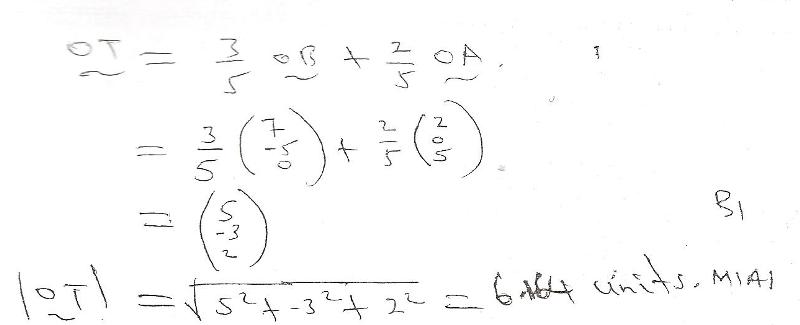 OT = 3/5 OB + 2/5 OA.
= 3/5 (7 -5 0) + 2/5 (2 0 5)
= (5 -3 2) B1
|OT| = √5² + -3² + 2² = 6.164 units. M1A1